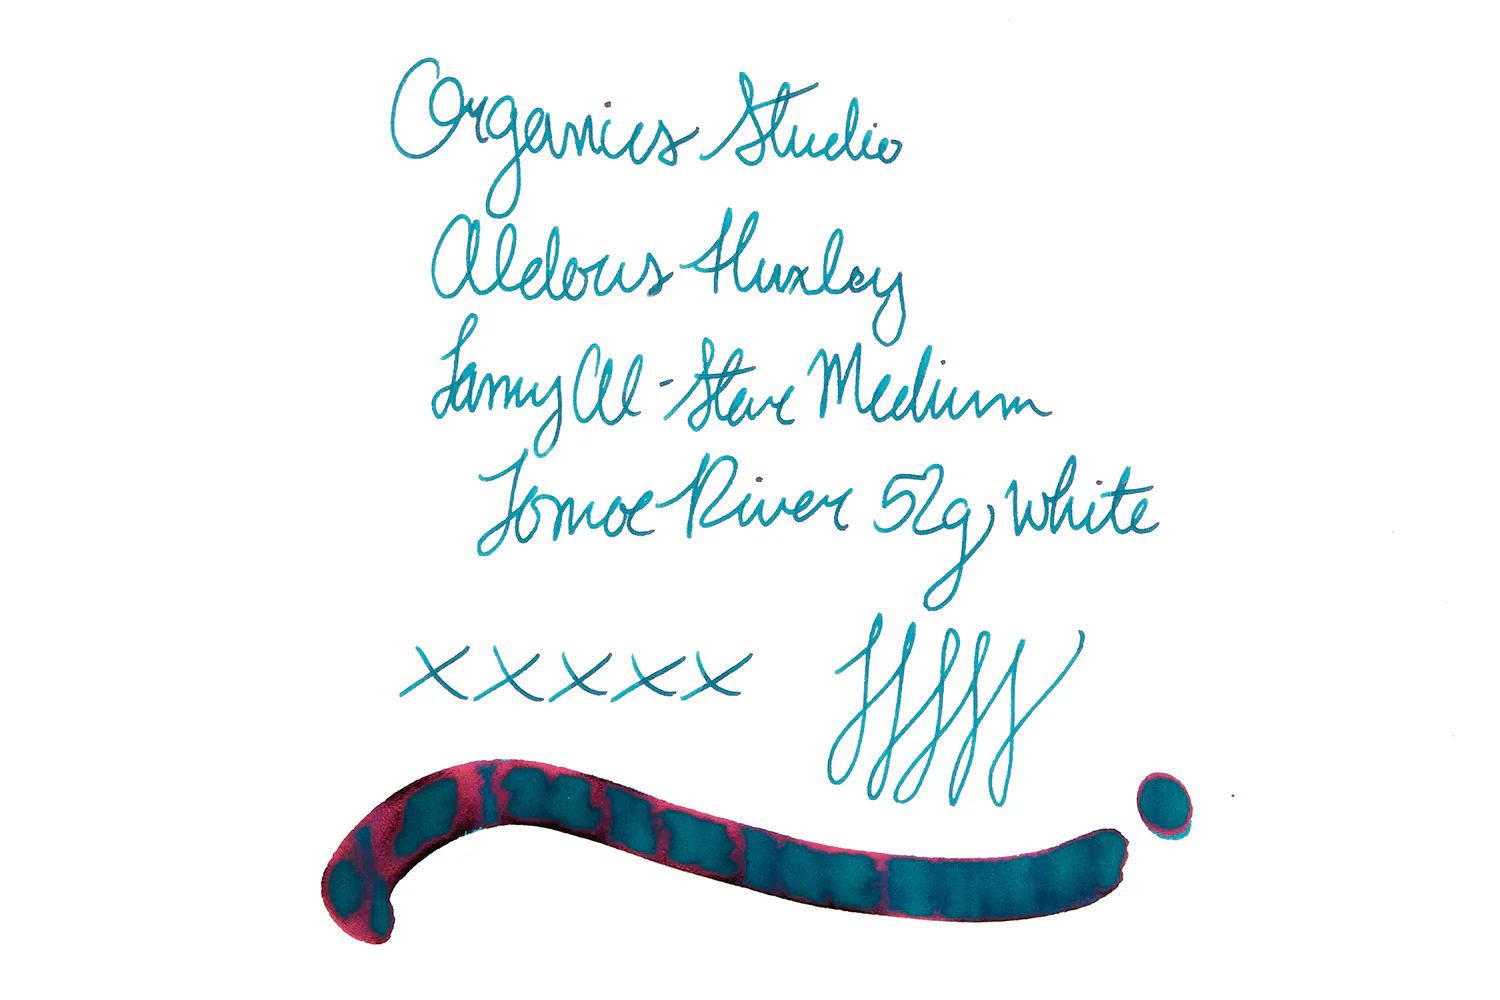 Organics Studio
Aldous Huxley
Lamy Al-Star Medium
Tomoe River 52g, White
x x x x x